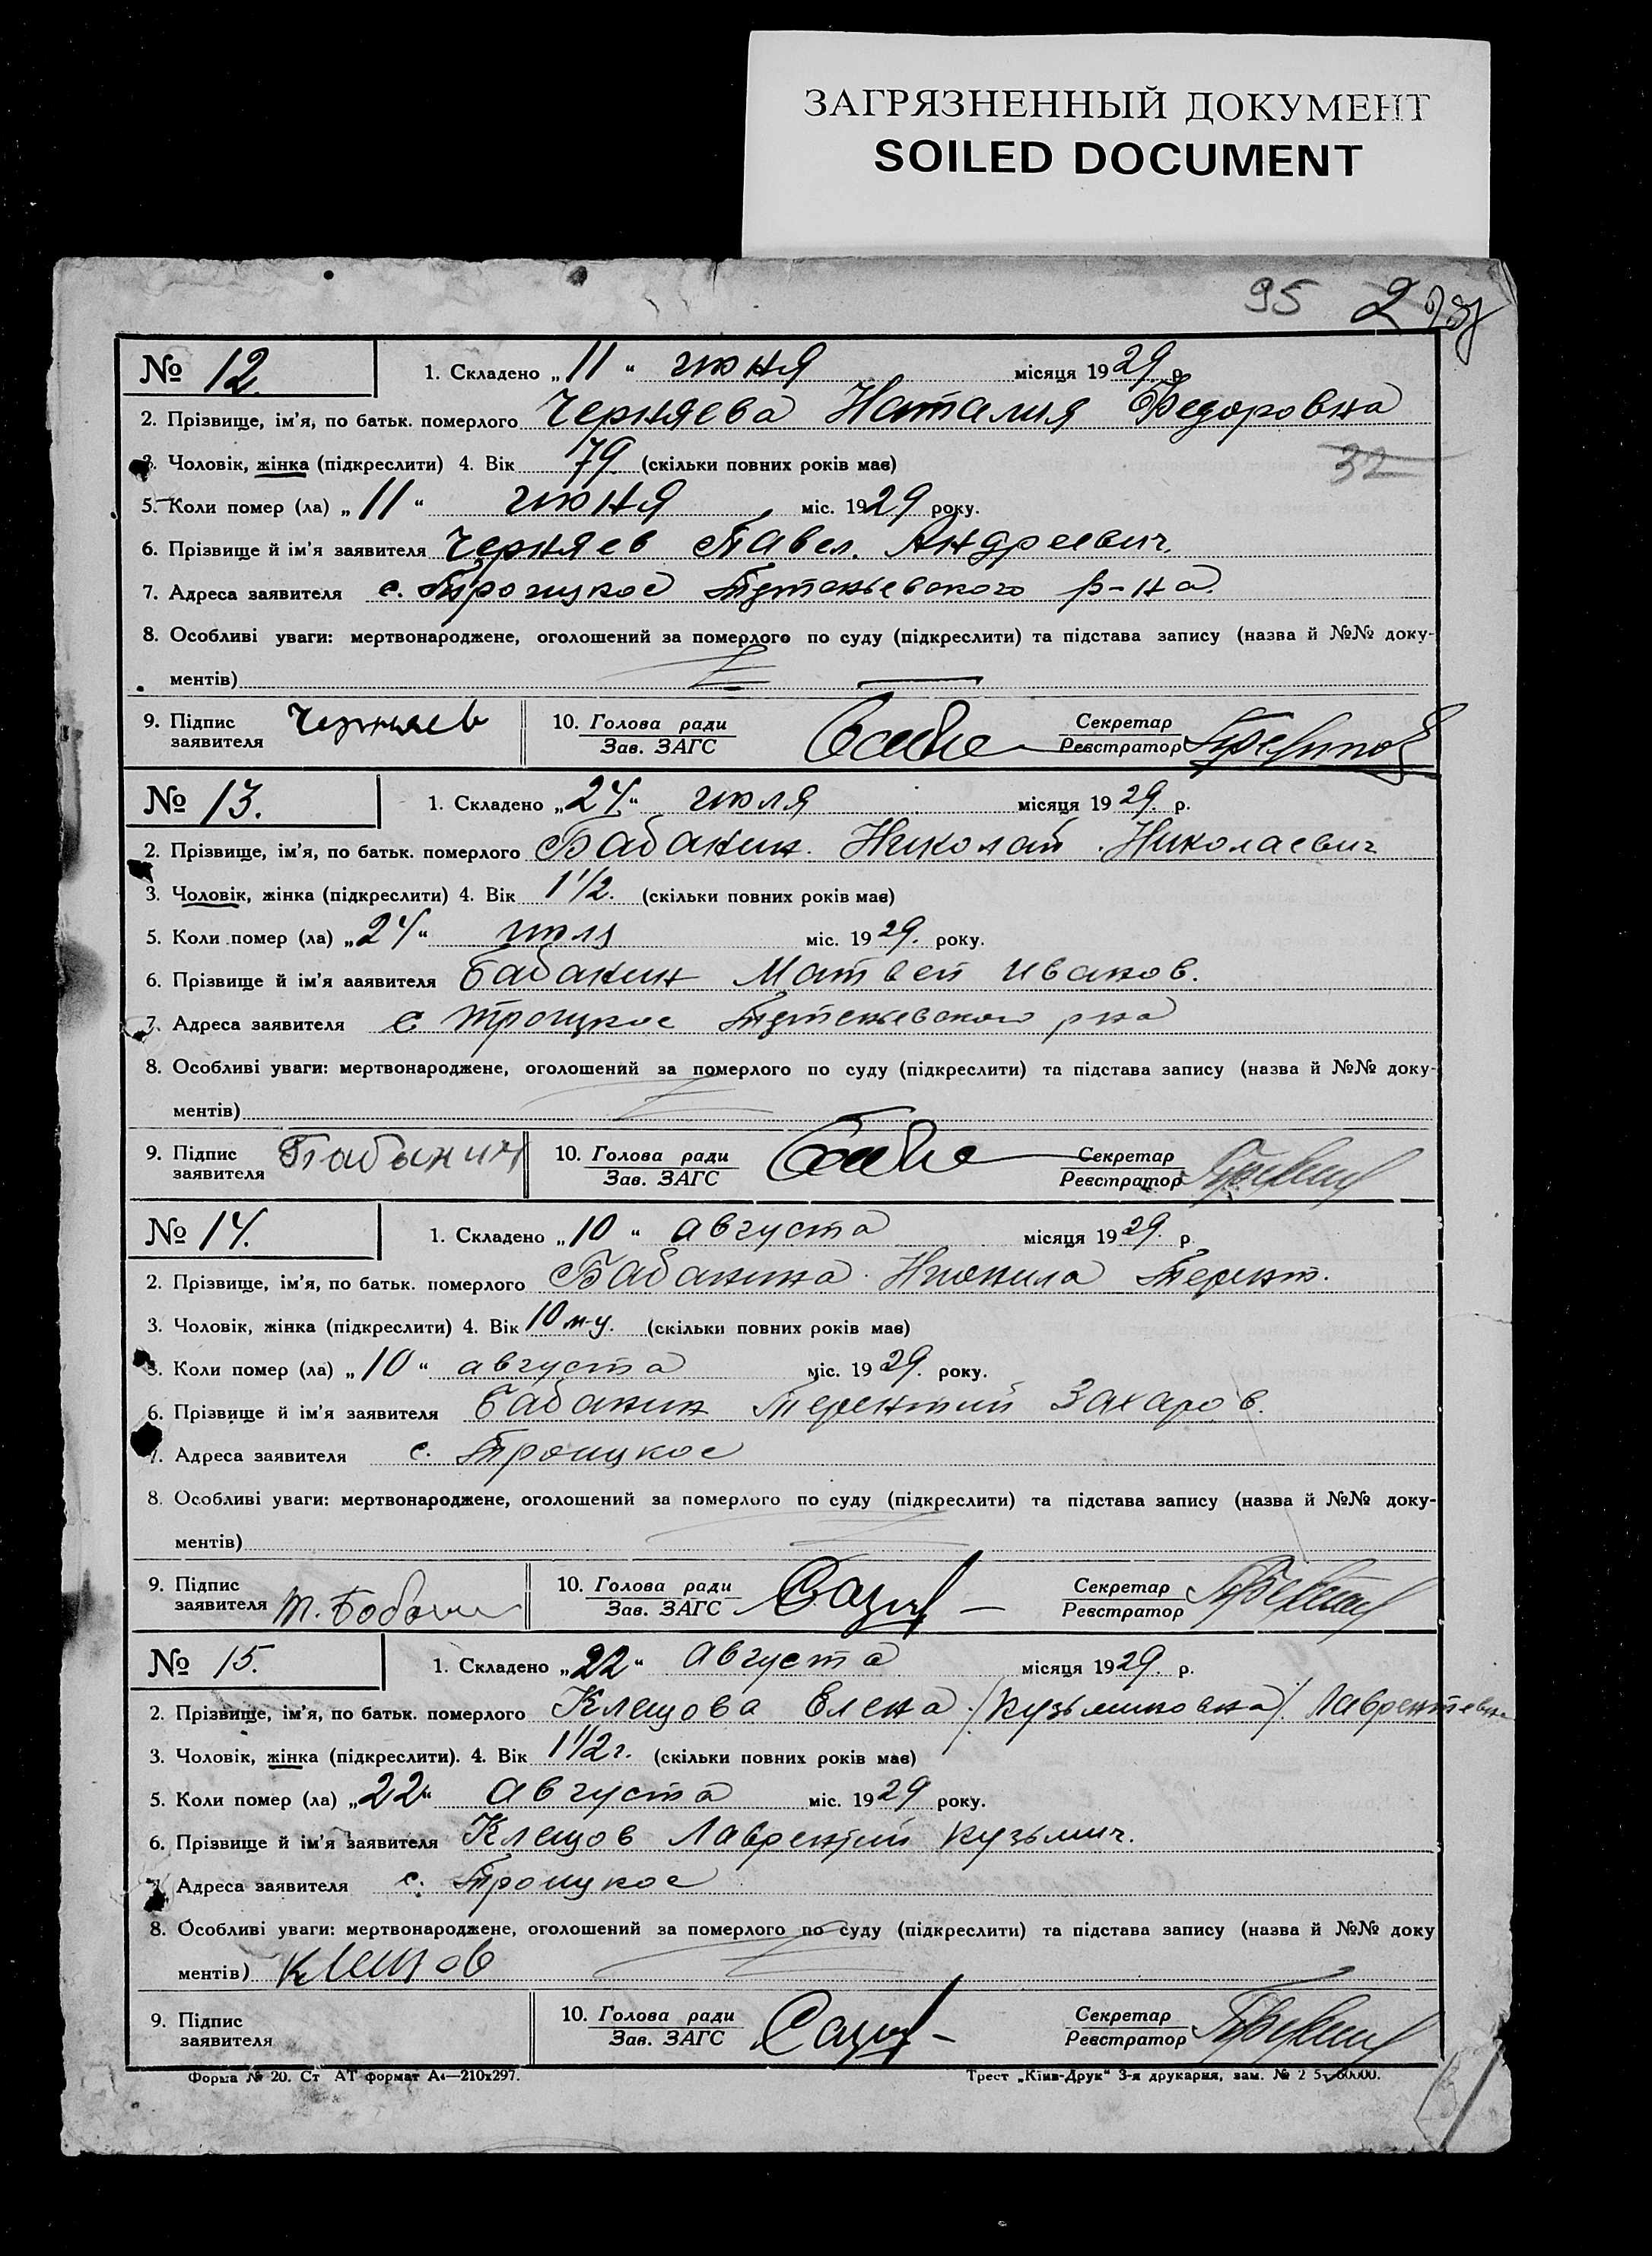 ЗАГРЯЗНЕННЫЙ ДОКУМЕНТ
SOILED DOCUMENT
95 2
№ 12. 1. Складено „11“ июня місяця 1929 р.
2. Прізвище, ім’я, по батьк. померлого Черняева Наталия Федоровна
3. Чоловік, жінка (підкреслити) 4. Вік 79. (скільки повних років має)
32
5. Коли помер (ла) „11“ июня міс. 1929 року.
6. Прізвище й ім’я заявителя Черняев Павел. Андреевич.
7. Адреса заявителя с. Троицкое р-на.
8. Особливі уваги: мертвонароджене, оголошений за померлого по суду (підкреслити) та підстава запису (назва й №№ доку-
ментів)
9. Підпис заявителя Черняев 10. Голова ради Зав. ЗАГС Секретар Реєстратор
№ 13. 1. Складено „24“ июля місяця 1929. р.
2. Прізвище, ім’я, по батьк. померлого Бабанин. Николай Николаевич
3. Чоловік, жінка (підкреслити) 4. Вік 1 1/2. (скільки повних років має)
5. Коли помер (ла) „24“ июля міс. 1929. року.
6. Прізвище й ім’я заявителя Бабанин Матвей Иванов.
7. Адреса заявителя с Троицкое рна
8. Особливі уваги: мертвонароджене, оголошений за померлого по суду (підкреслити) та підстава запису (назва й №№ доку-
ментів)
9. Підпис заявителя Бабанин 10. Голова ради Зав. ЗАГС Секретар Реєстратор
№ 14. 1. Складено „10“ августа місяця 1929. р
2. Прізвище, ім’я, по батьк. померлого Бабанина Терент.
3. Чоловік, жінка (підкреслити) 4. Вік 10 м-у. (скільки повних років має)
5. Коли помер (ла) „10“ августа міс. 1929. року.
6. Прізвище й ім’я заявителя Бабанин Терентий Захаров.
7. Адреса заявителя с. Троицкое
8. Особливі уваги: мертвонароджене, оголошений за померлого по суду (підкреслити) та підстава запису (назва й №№ доку-
ментів)
9. Підпис заявителя Т. 10. Голова ради Зав. ЗАГС Секретар Реєстратор
№ 15. 1. Складено „22“ августа місяця 1929. р.
2. Прізвище, ім’я, по батьк. померлого Клецова Елена /Кузьминовна/ Лаврентевна
3. Чоловік, жінка (підкреслити). 4. Вік 1 1/2 г. (скільки повних років має)
5. Коли помер (ла) „22“ августа міс. 1929 року.
6. Прізвище й ім’я заявителя Клецов Лаврентий Кузьмич.
7. Адреса заявителя с. Троицкое
8. Особливі уваги: мертвонароджене, оголошений за померлого по суду (підкреслити) та підстава запису (назва й №№ доку
ментів) Клецов
9. Підпис заявителя 10. Голова ради Зав. ЗАГС Секретар Реєстратор
Форма № 20. Ст АТ формат А4—210x297. Трест „Київ-Друк“ 3-я друкарня, зам. №